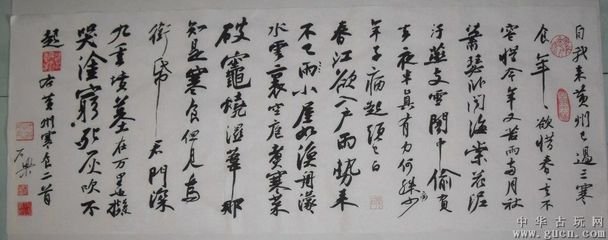 自我来黄州已過三寒
食年〻欲惜春〻去不
容惜今年又苦雨两月秋
萧瑟卧闻海棠花泥
汙燕支雪闇中偷負
去夜半真有力何殊少
年子病起頭已白
春江欲入户雨势来
不已雨小屋如渔舟濛
水雲裏空庖煮寒菜
破竈燒濕葦那
知是寒食但見烏
銜帋君門深
九重墳墓在万里也擬
哭塗窮死灰吹不
起 右黄州寒食二首
中华古玩网
www.gucn.com